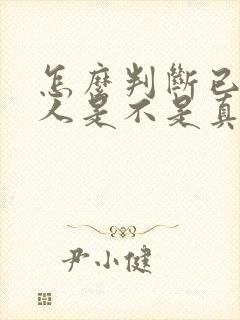 怎麼判斷已
人是不是真
尹小健